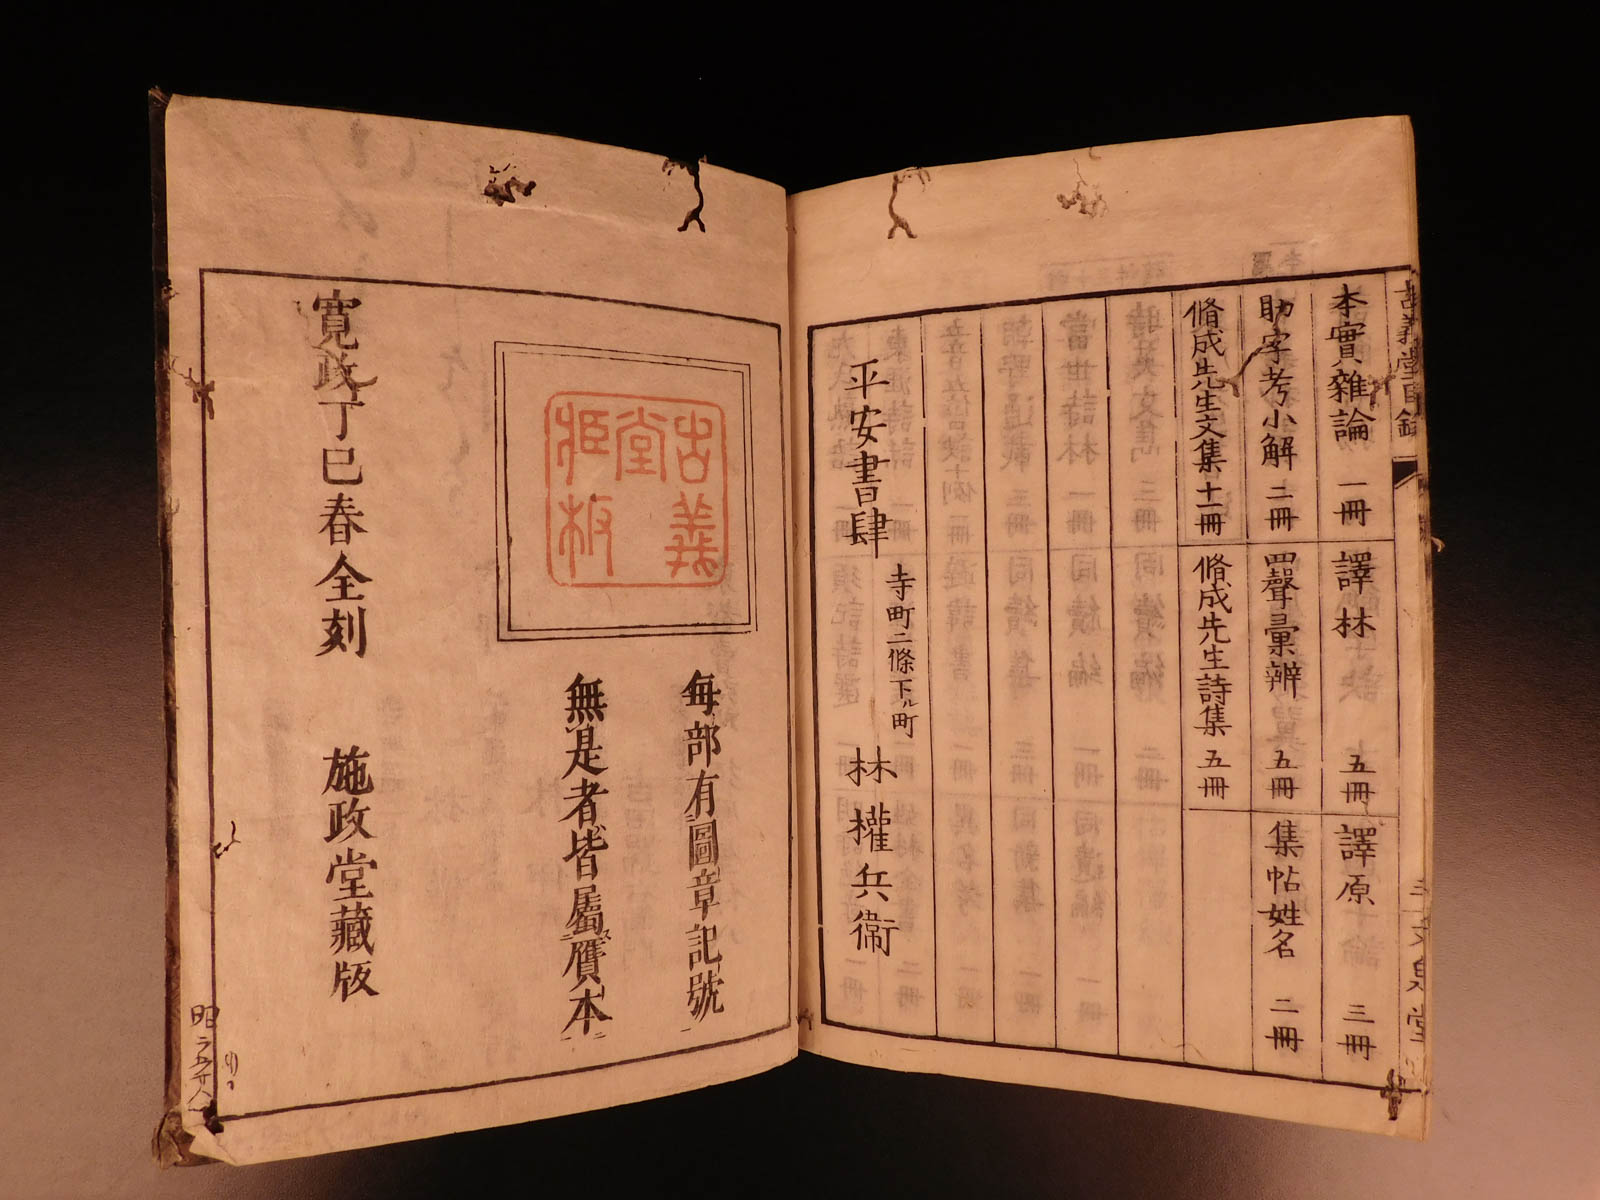 古義堂目録
本實雜論 一冊 譯林 五冊 譯原 三冊
助字考小解 二冊 四聲彙辨 五冊 集帖姓名 二冊
脩成先生文集 十一冊 脩成先生詩集 五冊
平安書肆 寺町二條下ル町 林權兵衞
文泉堂
古義堂挍板
每部有圖章記號
無是者皆屬贋本
寬政丁巳春全刻 施政堂藏版